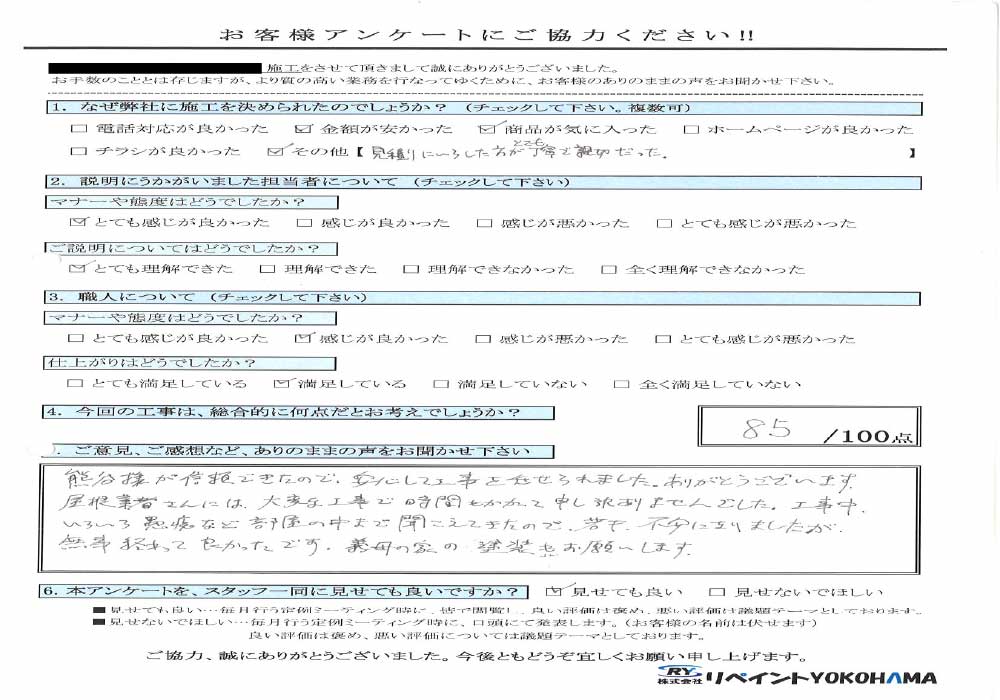 お客様アンケートにご協力ください!!
施工をさせて頂きまして誠にありがとうございました。
お手数のこととは存じますが、より質の高い業務を行なってゆくために、お客様のありのままの声をお聞かせ下さい。
1. なぜ弊社に施工を決められたのでしょうか？ (チェックして下さい。複数可)
□ 電話対応が良かった ☑ 金額が安かった ☑ 商品が気に入った □ ホームページが良かった
□ チラシが良かった ☑ その他【見積りにいらした方がとても丁寧で親切だった。】
2. 説明にうかがいました担当者について (チェックして下さい)
マナーや態度はどうでしたか？
☑ とても感じが良かった □ 感じが良かった □ 感じが悪かった □ とても感じが悪かった
ご説明についてはどうでしたか？
☑ とても理解できた □ 理解できた □ 理解できなかった □ 全く理解できなかった
3. 職人について (チェックして下さい)
マナーや態度はどうでしたか？
□ とても感じが良かった ☑ 感じが良かった □ 感じが悪かった □ とても感じが悪かった
仕上がりはどうでしたか？
□ とても満足している ☑ 満足している □ 満足していない □ 全く満足していない
4. 今回の工事は、総合的に何点だとお考えでしょうか？
85 /100点
. ご意見、ご感想など、ありのままの声をお聞かせ下さい
熊谷様が信頼できたので、安心して工事を任せられました。ありがとうございます。
屋根業者さんには、大変な工事で時間をかかって申し訳ありませんでした。工事中、
いろいろ愚痴など部屋の中まで聞こえてきたので、若干、不安になりましたが
無事終わって良かったです。義母の家の塗装もお願いします。
6. 本アンケートを、スタッフ一同に見せても良いですか？ ☑ 見せても良い □ 見せないでほしい
■見せても良い…毎月行う定例ミーティング時に、皆で閲覧し、良い評価は褒め、悪い評価は議題テーマとしております。
■見せないでほしい…毎月行う定例ミーティング時に、口頭にて発表します。(お客様の名前は伏せます)
良い評価は褒め、悪い評価については議題テーマとしております。
ご協力、誠にありがとうございました。今後ともどうぞ宜しくお願い申し上げます。
RY 株式会社 リペイントYOKOHAMA